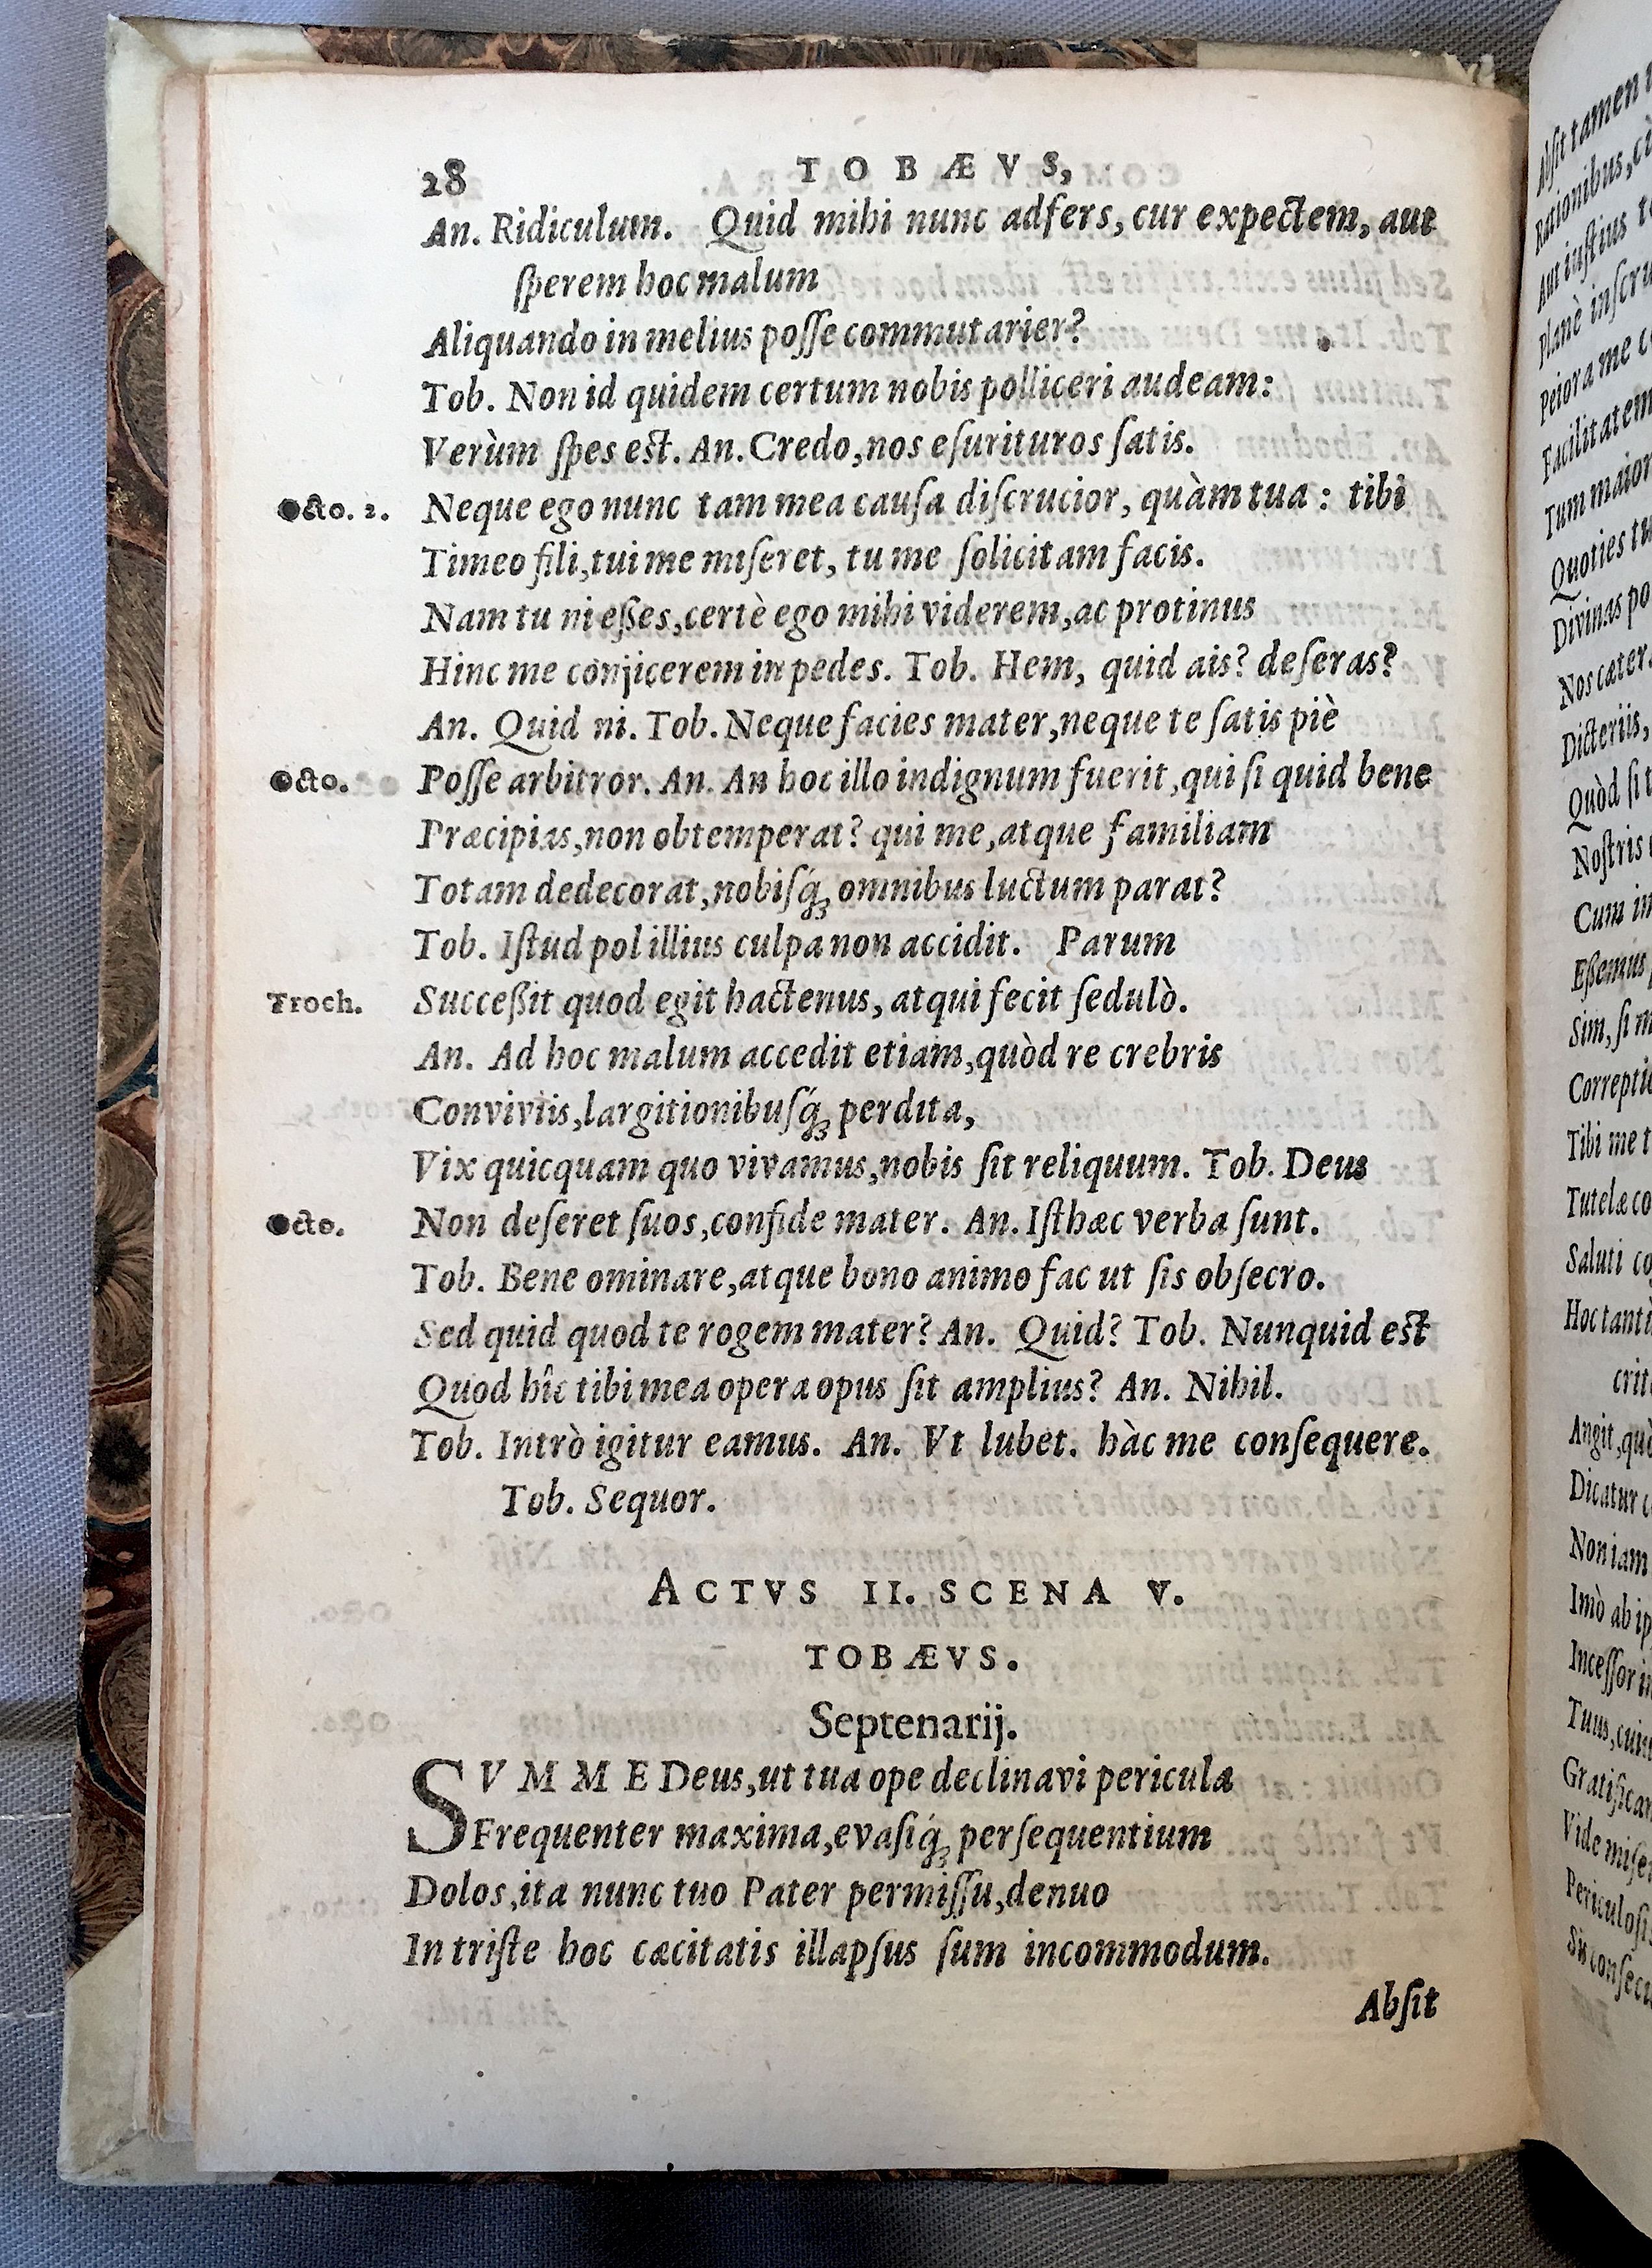 28 TOBÆVS,
An. Ridiculum. Quid mihi nunc adfers, cur expectem, aut
ſperem hoc malum
Aliquando in melius poſſe commutarier?
Tob. Non id quidem certum nobis polliceri audeam:
Verùm ſpes eſt. An. Credo, nos eſurituros ſatis.
Octo. 2. Neque ego nunc tam mea cauſa diſcrucior, quàm tua: tibi
Timeo fili, tui me miſeret, tu me ſolicitam facis.
Nam tu ni eßes, certè ego mihi viderem, ac protinus
Hinc me conjicerem in pedes. Tob. Hem, quid ais? deſeras?
An. Quid ni. Tob. Neque facies mater, neque te ſatis piè
Octo. Poſſe arbitror. An. An hoc illo indignum fuerit, qui ſi quid bene
Præcipias, non obtemperat? qui me, atque familiam
Totam dedecorat, nobiſq́ꝫ omnibus luctum parat?
Tob. Iſtud pol illius culpa non accidit. Parum
Troch. Succeßit quod egit hactenus, atqui fecit ſedulò.
An. Ad hoc malum accedit etiam, quòd re crebris
Conviviis, largitionibuſq́ꝫ perdita,
Vix quicquam quo vivamus, nobis ſit reliquum. Tob. Deus
Octo. Non deſeret ſuos, confide mater. An. Iſthæc verba ſunt.
Tob. Bene ominare, atque bono animo fac ut ſis obſecro.
Sed quid quod te rogem mater? An. Quid? Tob. Nunquid eſt
Quod hîc tibi mea opera opus ſit amplius? An. Nihil.
Tob. Intrò igitur eamus. An. Vt lubet. hàc me conſequere.
Tob. Sequor.
ACTVS II. SCENA V.
TOBÆVS.
Septenarij.
SVMME Deus, ut tua ope declinavi pericula
Frequenter maxima, evaſiq́ꝫ perſequentium
Dolos, ita nunc tuo Pater permiſſu, denuo
In triſte hoc cæcitatis illapſus ſum incommodum.
Abſit
Abſit tamen
Rationibus,
Aut iuſtius
Planè
Peiora me
Facilitatem
Tum maior
Quoties
Divinas
Nos
Dicteriis,
Quòd ſi
Noſtris
Cum
Eßemus
Sim, ſi
Tibi me
Tutelæ
Saluti
Hoc
Angit,
Dicatur
Non iam
Imò ab
Tuus,
Vide